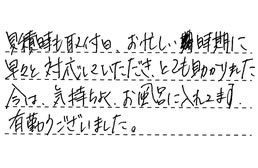 見積時も取付日、お忙しい時期に
早々と対応していただき、とても助かりました
今は、気持ちよく、お風呂に入れてます
有難うございました。